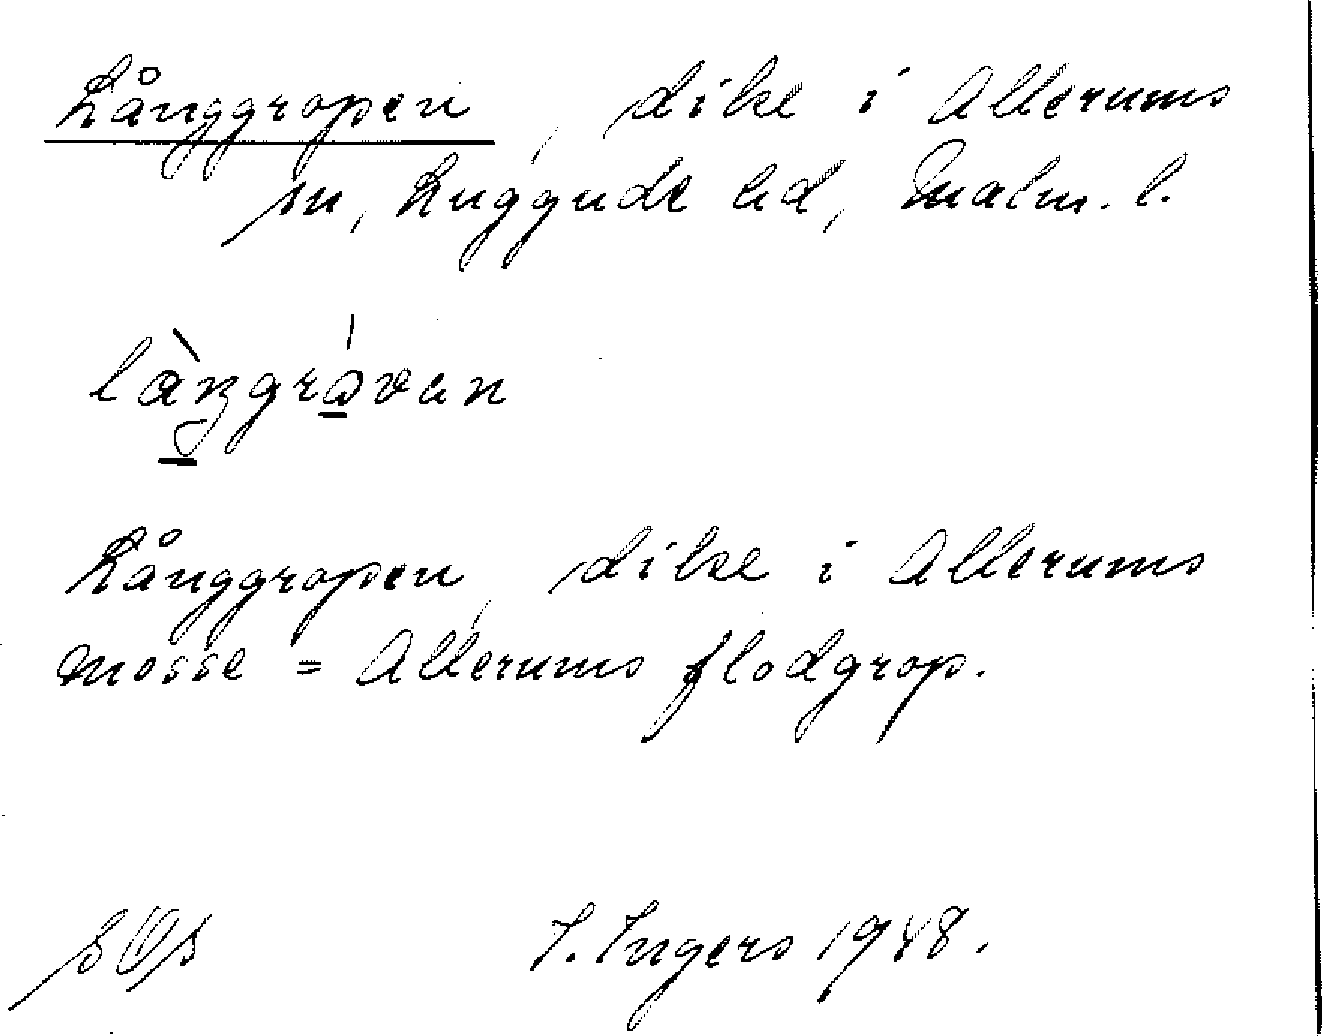 Långgropen, dike i Allerums
sn, Luggude hd, Malm. l.
làŋgrávan
Långgropen, dike i Allerums
mosse = Allerums flodgrop.
I. Ingers 1948.